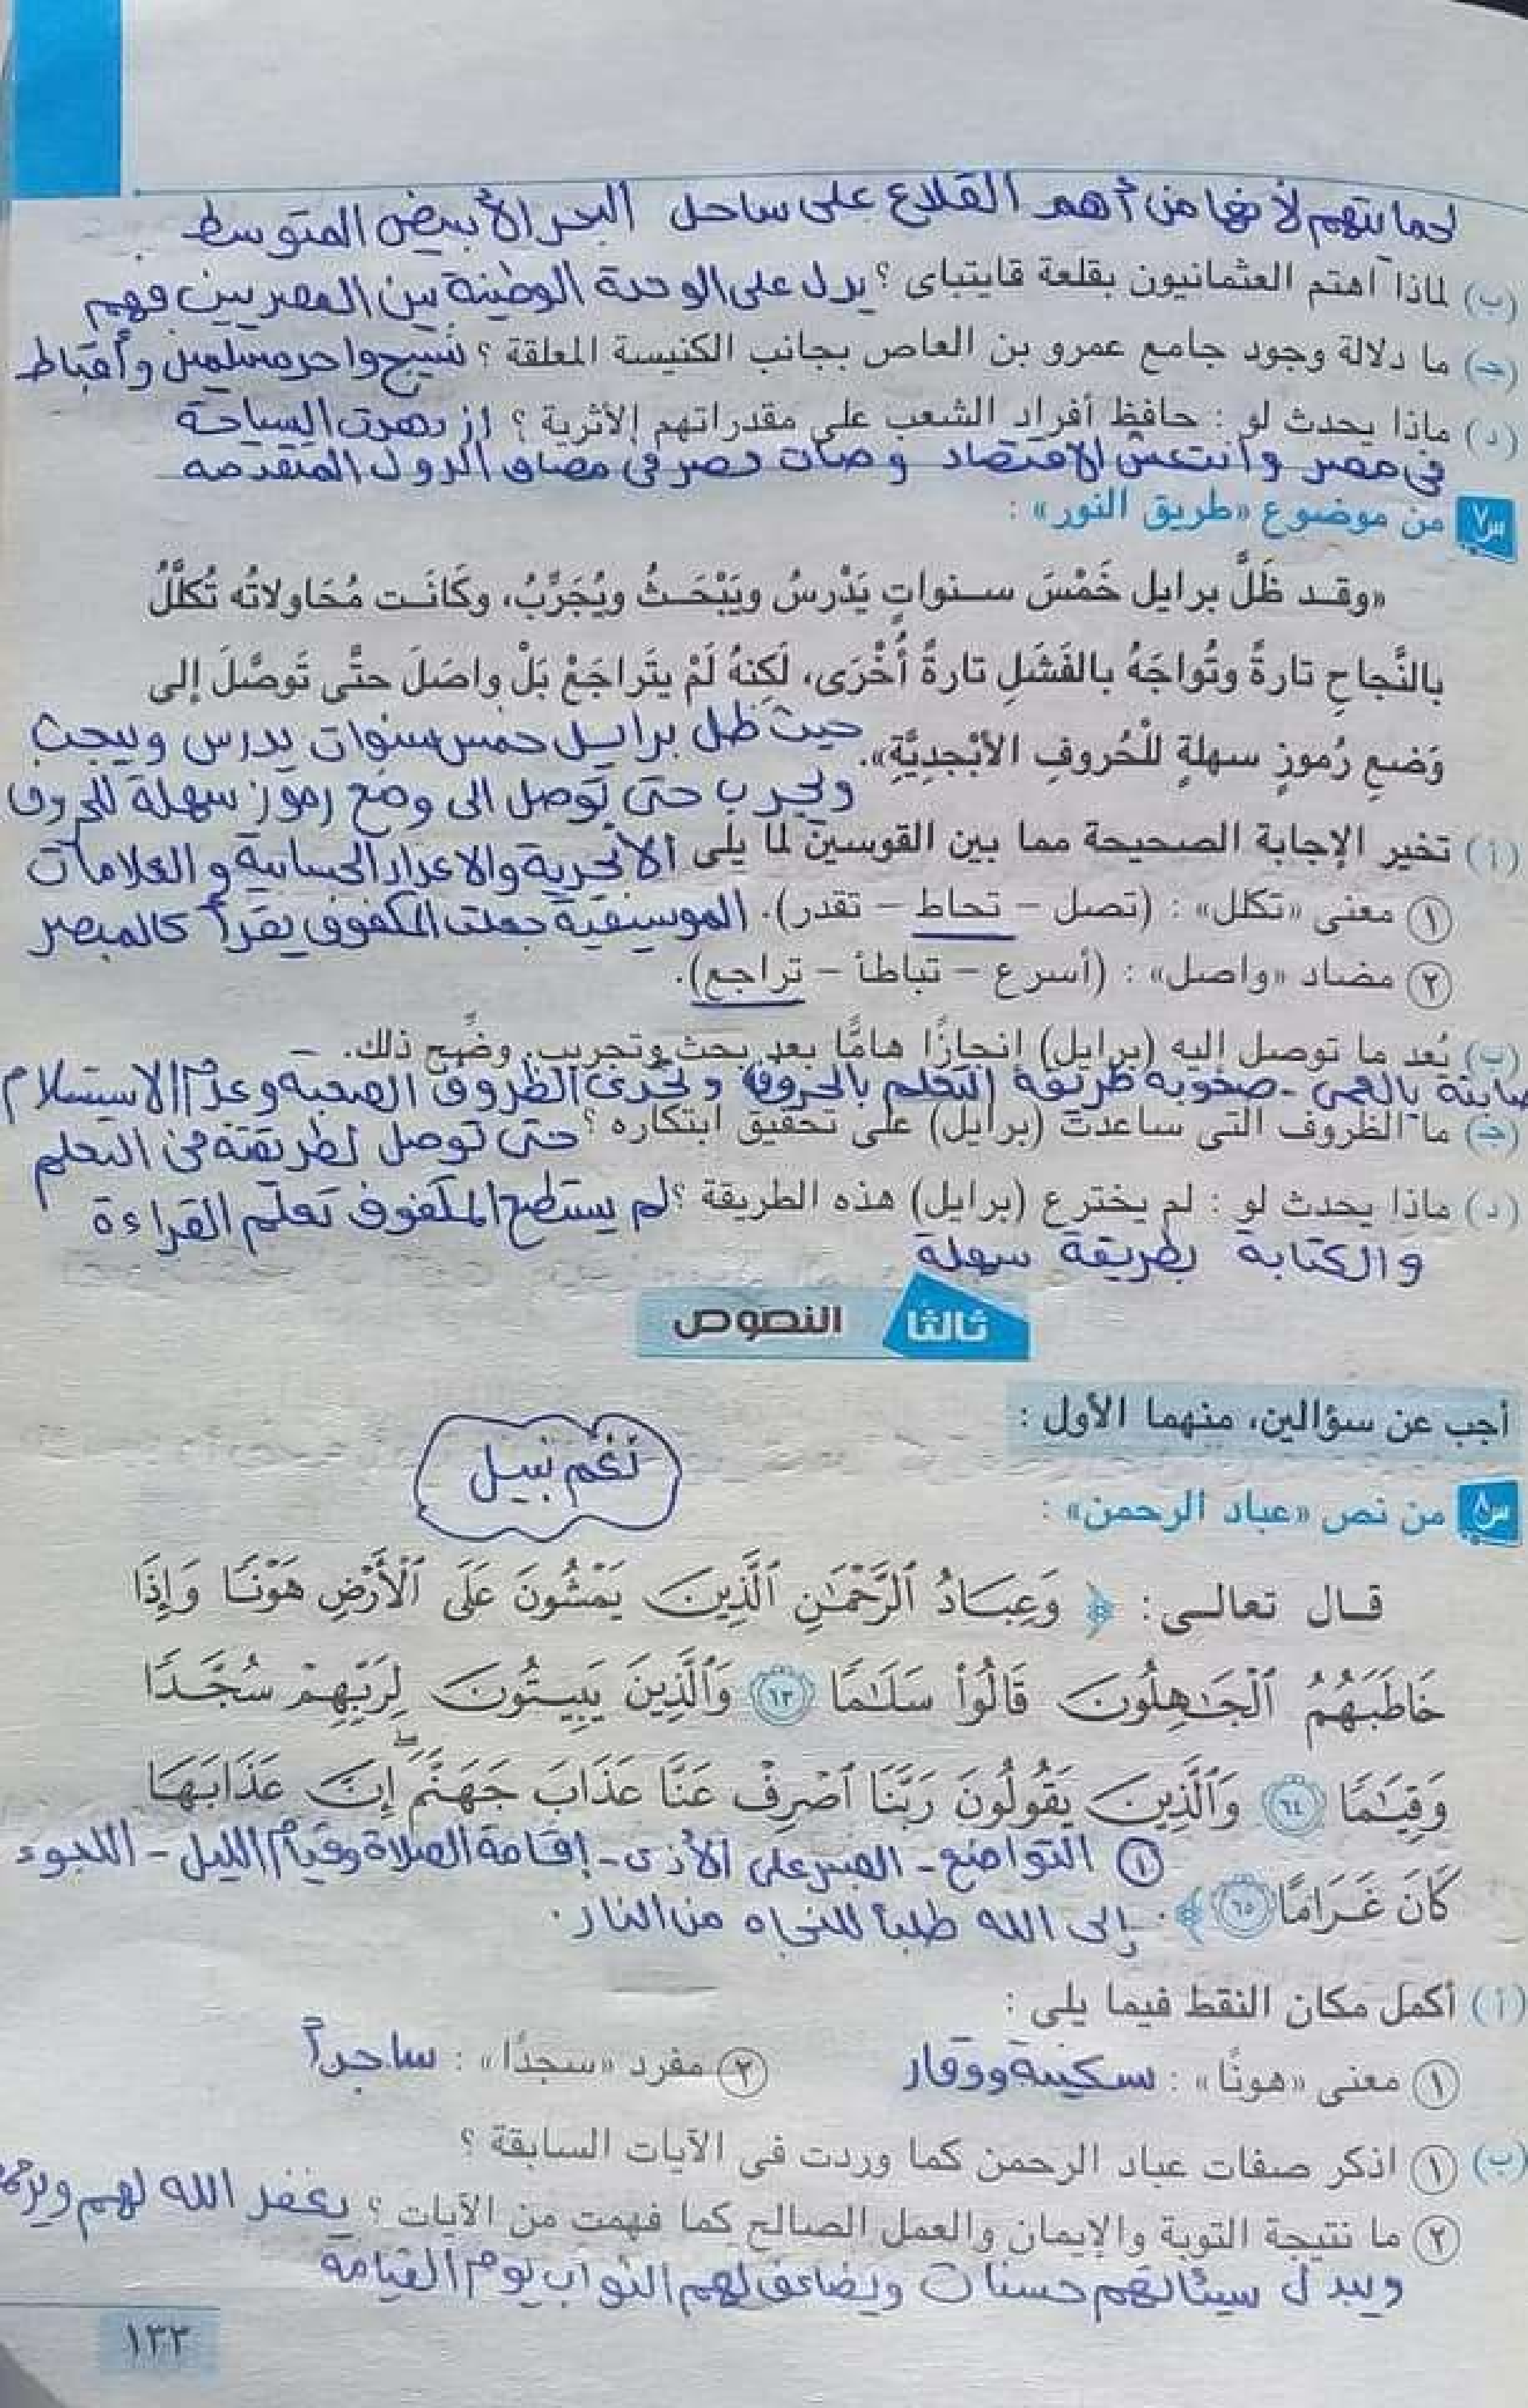 لحمايتهم لأنها من أهم القلاع على ساحل البحر الأبيض المتوسط
(ب) لماذا اهتم العثمانيون بقلعة قايتباى ؟ يدل على الوحدة الوطنية بين المصريين فهم
(جـ) ما دلالة وجود جامع عمرو بن العاص بجانب الكنيسة المعلقة ؟ نسيج واحد مسلمين وأقباط
(د) ماذا يحدث لو : حافظ أفراد الشعب على مقدراتهم الأثرية ؟ ازدهرت السياحة
فى مصر وانتعش الاقتصاد وصات مصر فى مصاف الدول المتقدمه
س٧ من موضوع «طريق النور» :
«وقد ظَلَّ برايل خَمْسَ سنواتٍ يَدْرسُ ويَبْحَثُ ويُجَرِّبُ، وكَانَت مُحَاولاتُه تُكلَّلُ
بالنَّجاحِ تارةً وتُواجَهُ بالفَشَلِ تارةً أُخْرَى، لَكِنهُ لَمْ يتَراجَعْ بَلْ واصَلَ حتَّى تَوصَّلَ إلى
وَضعِ رُموزٍ سهلةٍ للْحُروفِ الأبْجديَّةِ». حيث ظل برايل خمس سنوات يدرس ويبحث
ويجرب حتى توصل الى وضع رموز سهلة للحروف
(أ) تخير الإجابة الصحيحة مما بين القوسين لما يلى الأبجدية والاعداد الحسابية والعلامات
① معنى «تكلل» : (تصل – تحاط – تقدر). الموسيقية جعلت المكفوف يقرأ كالمبصر
② مضاد «واصل» : (أسرع – تباطأ – تراجع).
(ب) يُعد ما توصل إليه (برايل) إنجازًا هامًّا بعد بحث وتجريب. وضِّح ذلك.
صابته بالعمى - صعوبه طريقة التعلم بالحروف وتحدى الظروف الصعبه وعدم الاستسلام
(جـ) ما الظروف التى ساعدت (برايل) على تحقيق ابتكاره ؟ حتى توصل لطريقته فى التعلم
(د) ماذا يحدث لو : لم يخترع (برايل) هذه الطريقة ؟ لم يستطع المكفوف تعلم القراءة
والكتابة بطريقة سهلة
ثالثا النصوص
أجب عن سؤالين، منهما الأول :
نغم نبيل
س٨ من نص «عباد الرحمن» :
قال تعالى : ﴿ وَعِبَادُ ٱلرَّحْمَٰنِ ٱلَّذِينَ يَمْشُونَ عَلَى ٱلْأَرْضِ هَوْنًا وَإِذَا
خَاطَبَهُمُ ٱلْجَٰهِلُونَ قَالُوا۟ سَلَٰمًا ٦٣ وَٱلَّذِينَ يَبِيتُونَ لِرَبِّهِمْ سُجَّدًا
وَقِيَٰمًا ٦٤ وَٱلَّذِينَ يَقُولُونَ رَبَّنَا ٱصْرِفْ عَنَّا عَذَابَ جَهَنَّمَ ۖ إِنَّ عَذَابَهَا
① التواضع - الصبر على الأذى - إقامة الصلاة وقيام الليل - اللجوء
كَانَ غَرَامًا ٦٥ ﴾. إلى الله طلبًا للنجاه من النار.
(أ) أكمل مكان النقط فيما يلى :
① معنى «هونًا» : سكينة ووقار ② مفرد «سجدًا» : ساجداً
(ب) ① اذكر صفات عباد الرحمن كما وردت فى الآيات السابقة ؟
② ما نتيجة التوبة والإيمان والعمل الصالح كما فهمت من الآيات ؟ يغفر الله لهم
ويبدل سيئاتهم حسنات ويضاعف لهم الثواب يوم القيامة
١٣٣